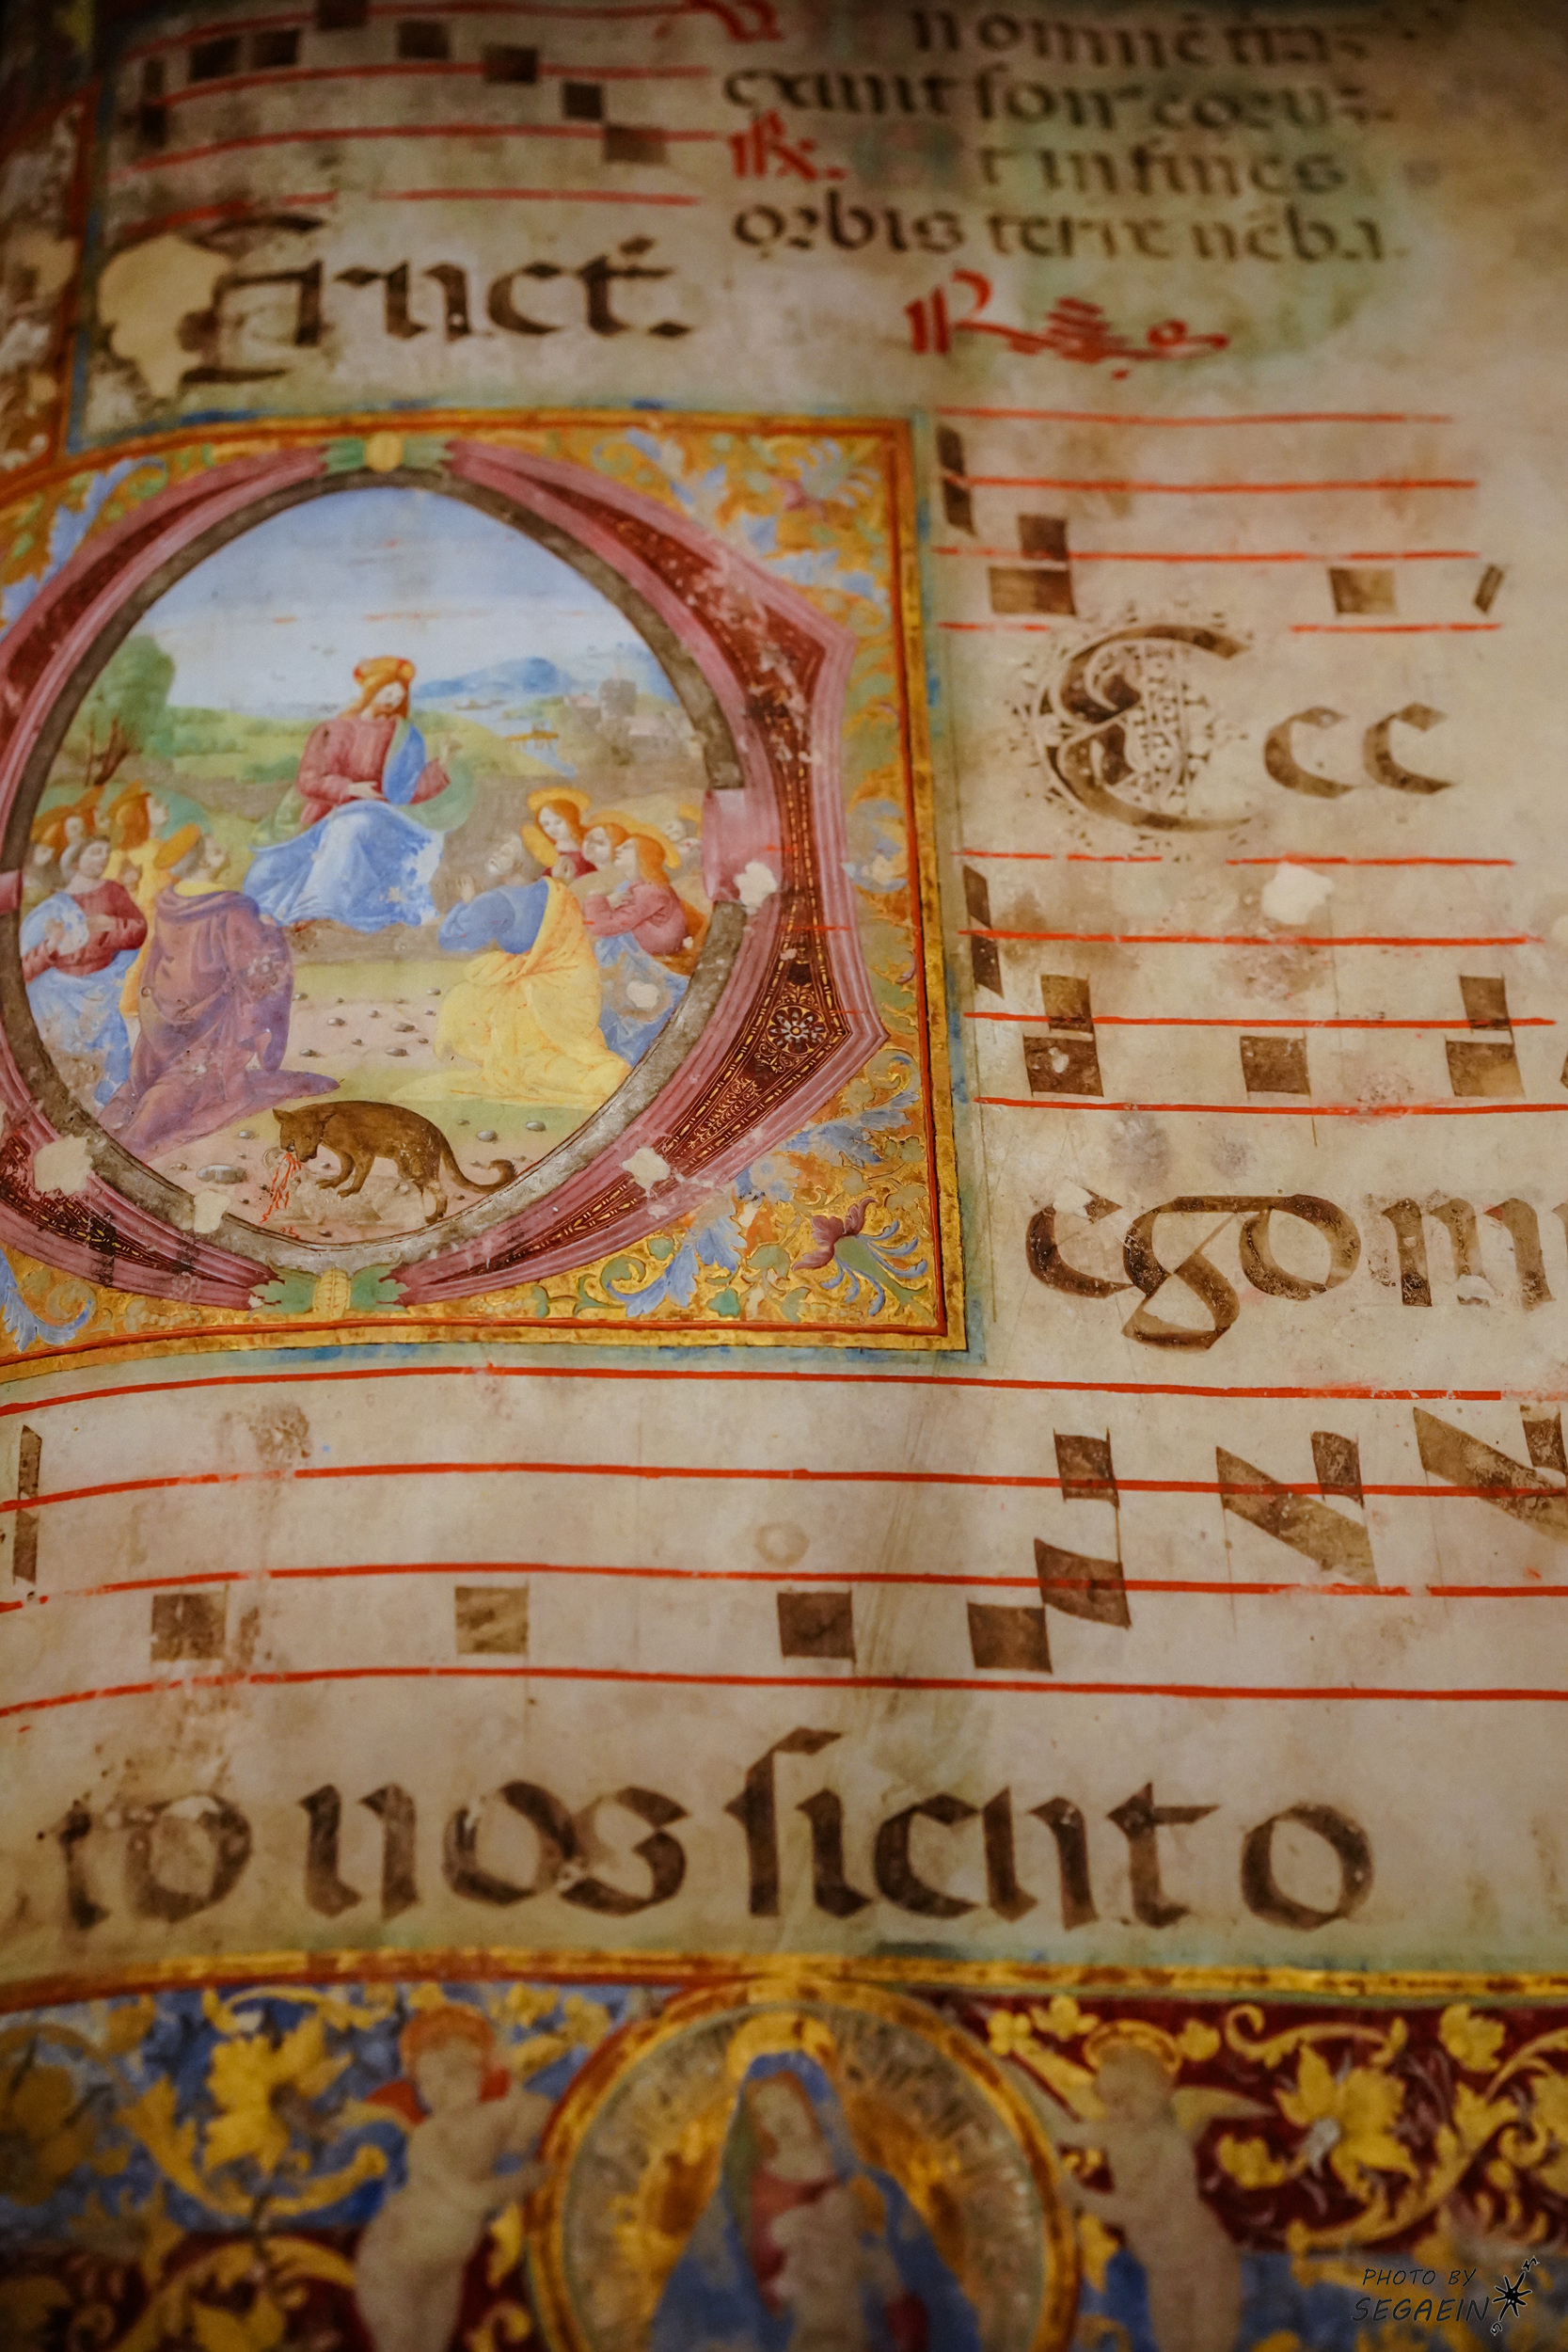 exiuit son' eoruꝫ
℟. t in fines
orbis terre ueba
Sanct.
Ecc
egom
to uos sicut o
PHOTO BY
SEGAEIN